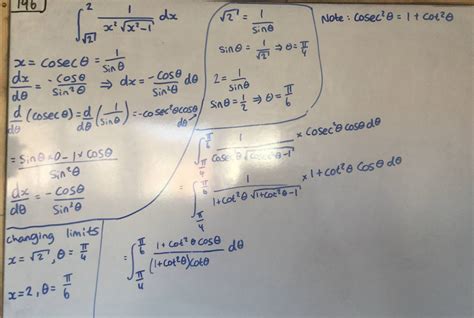 146
∫_{√2}^{2} 1/(x²√(x²-1)) dx
x = cosecθ = 1/sinθ
dx/dθ = -cosθ/sin²θ ⇒ dx = -cosθ/sin²θ dθ
d/dθ (cosecθ) = d/dθ (1/sinθ) = -cosec²θcosθ dθ
= (sinθ×0 - 1×cosθ)/sin²θ
dx/dθ = -cosθ/sin²θ
changing limits
x = √2, θ = π/4
x = 2, θ = π/6
√2 = 1/sinθ
sinθ = 1/√2 ⇒ θ = π/4
2 = 1/sinθ
sinθ = 1/2 ⇒ θ = π/6
Note: cosec²θ = 1 + cot²θ
∫_{π/4}^{π/6} 1/(cosec²θ√(cosec²θ-1)) × cosec²θcosθdθ
= ∫_{π/4}^{π/6} 1/(1+cot²θ√(1+cot²θ-1)) × 1+cot²θ cosθ dθ
= ∫_{π/4}^{π/6} (1+cot²θ cosθ)/((1+cot²θ)cotθ) dθ